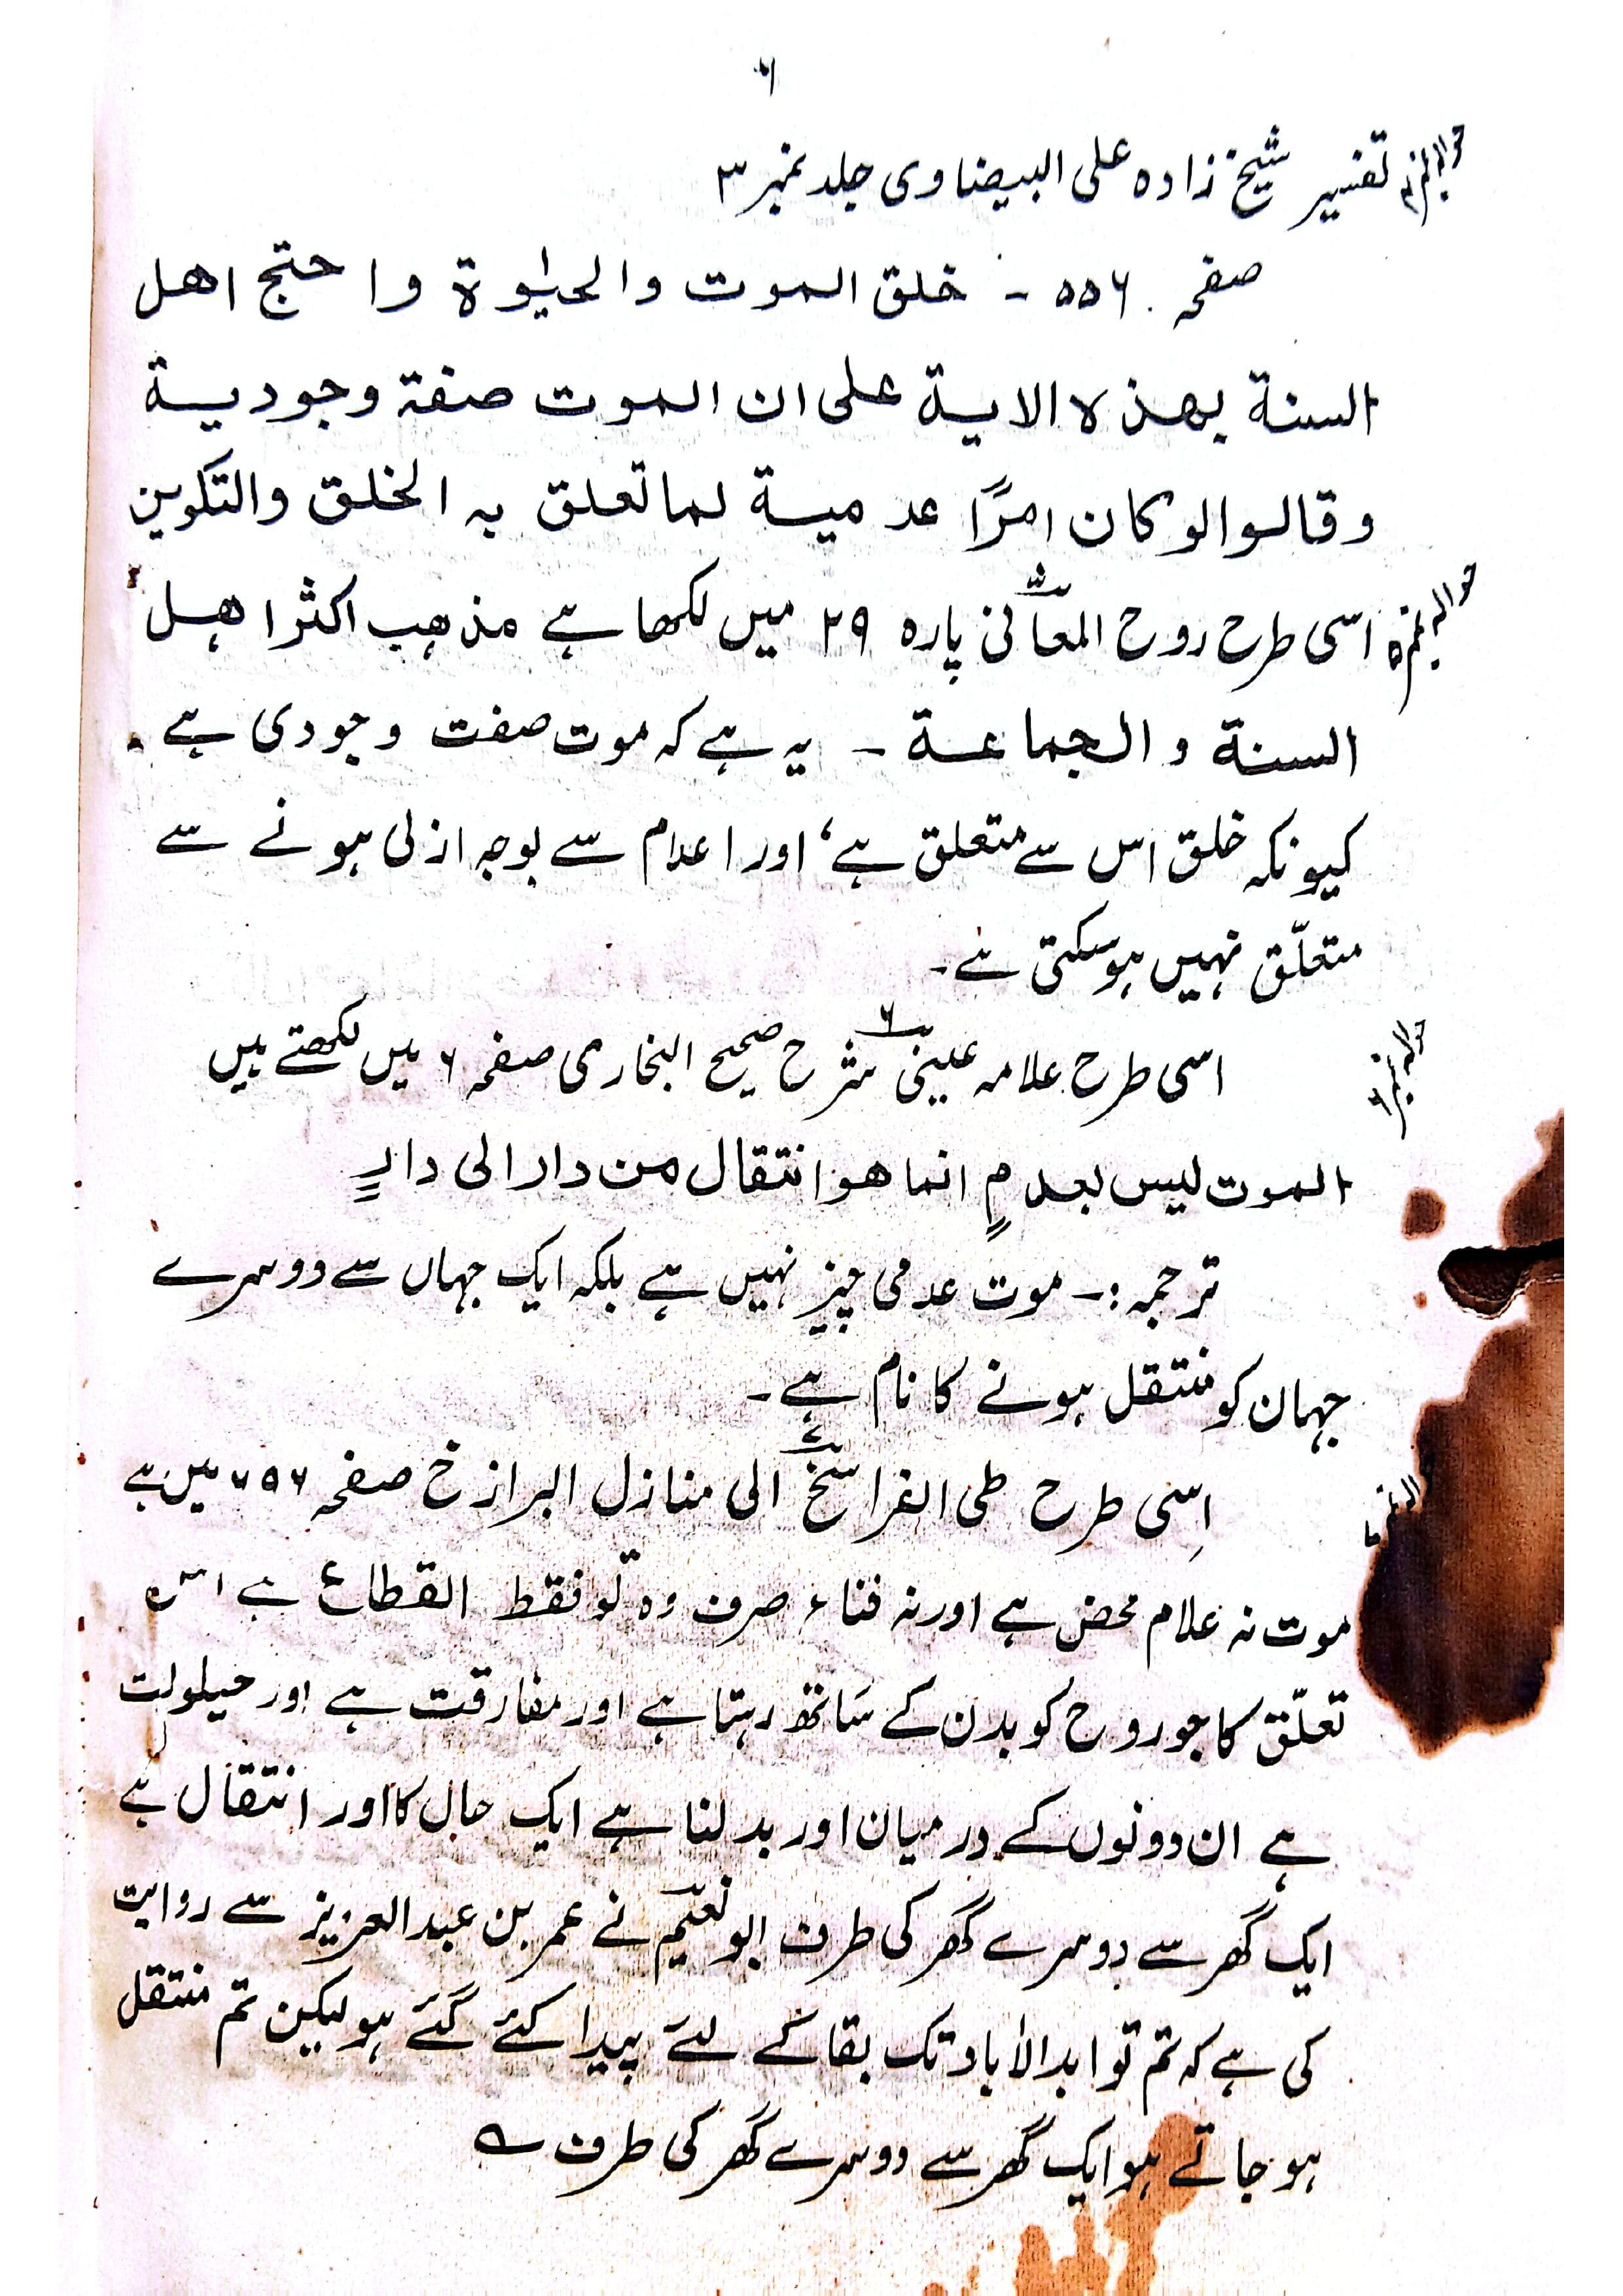 ۶
حوالہ نمبر۴ تفسیر شیخ زادہ علی البیضاوی جلد نمبر ۳
صفحہ ۵۵۶ - خلق الموت والحیٰوة واحتج اهل
السنة بهذه الایة علی ان الموت صفة وجودیة
وقالوا لو کان امرًا عدمیة لما تعلق به الخلق والتکوین
حوالہ نمبر۵ اسی طرح روح المعانی پارہ ۲۹ میں لکھا ہے مذهب اکثر اهل
السنة والجماعة - یہ ہے کہ موت صفت وجودی ہے۔
کیونکہ خلق اس سے متعلق ہے، اور اعدام سے بوجہ ازلی ہونے سے
متعلّق نہیں ہوسکتی ہے۔
حوالہ نمبر۶ اسی طرح علامہ عینی شرح صحیح البخاری صفحہ ۶ میں لکھتے ہیں
الموت لیس بعدمٍ انما هو انتقال من دار الی دارٍ
ترجمہ:- موت عدمی چیز نہیں ہے بلکہ ایک جہاں سے دوسرے
جہان کو منتقل ہونے کا نام ہے۔
اِسی طرح طی الفراسخ الی منازل البرازخ صفحہ میں ہے
موت نہ عدام محض ہے اور نہ فناء صرف وہ تو فقط انقطاع ہے اس
تعلّق کا جو روح کو بدن کے ساتھ رہتا ہے اور مفارقت ہے اور حیلولت
ہے ان دونوں کے درمیان اور بدلنا ہے ایک حال کا اور انتقال ہے
ایک گھر سے دوسرے گھر کی طرف ابو نعیم نے عمر بن عبدالعزیز سے روایت
کی ہے کہ تم تو ابدالاٰباد تک بقا کے لئے پیدا کئے گئے ہو لیکن تم منتقل
ہو جاتے ہو ایک گھر سے دوسرے گھر کی طرف